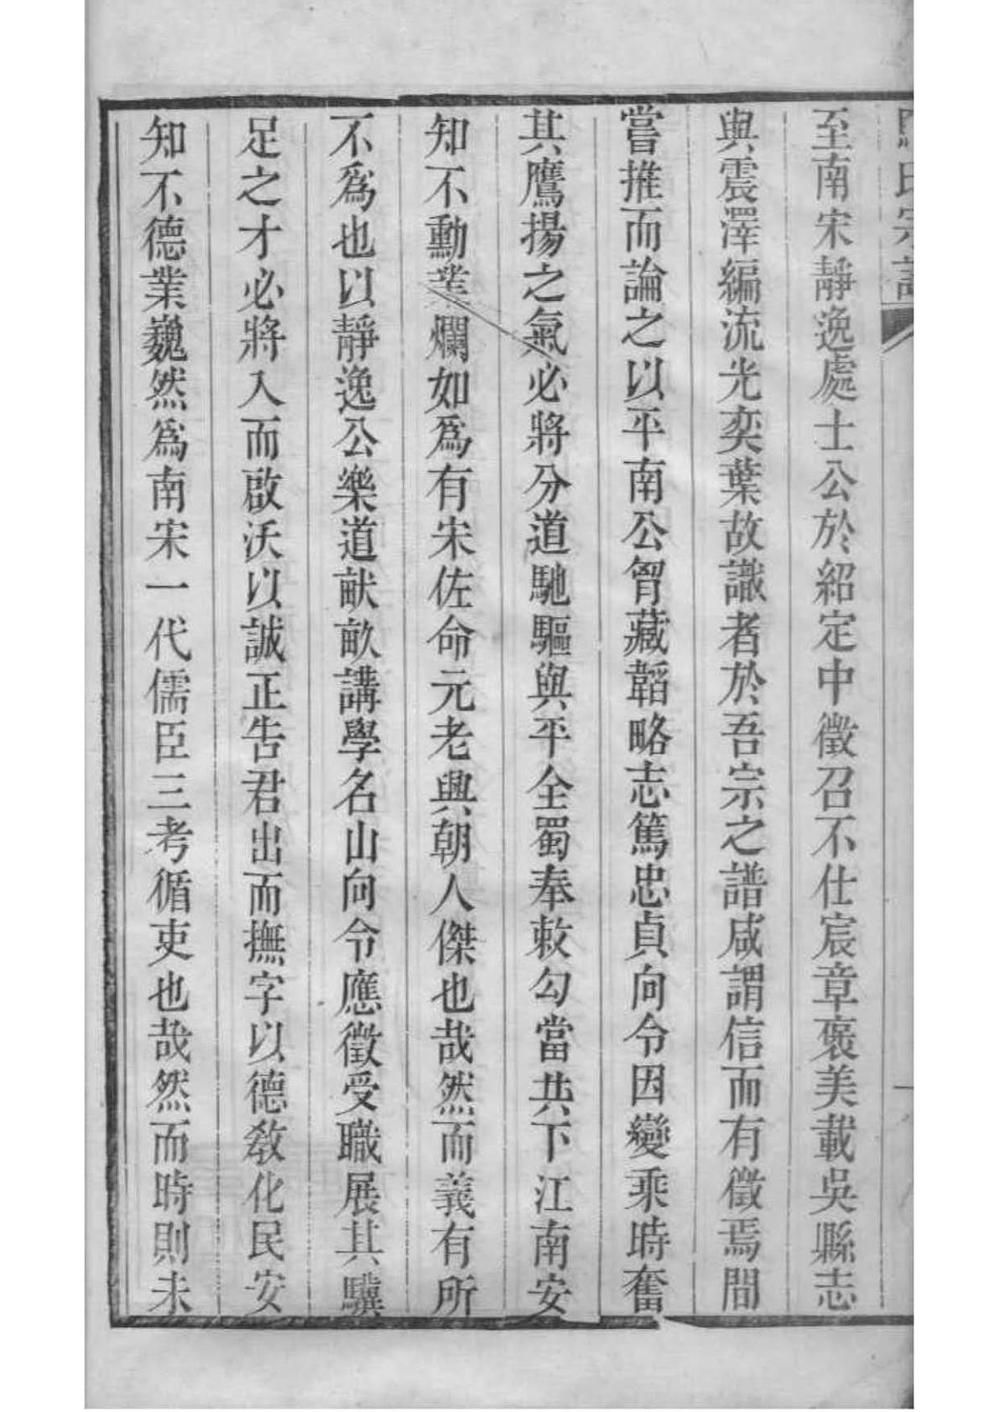 氏宗譜
至南宋靜逸處士公於紹定中徵召不仕宸章褒美載吳縣志
與震澤編流光奕葉故識者於吾宗之譜咸謂信而有徵焉間
嘗推而論之以平南公胷藏韜略志篤忠貞向令因變乘時奮
其鷹揚之氣必將分道馳驅與平全蜀奉敕勾當共下江南安
知不勳業爛如為有宋佐命元老興朝人傑也哉然而義有所
不為也以靜逸公樂道畎畝講學名山向令應徵受職展其驥
足之才必將入而啟沃以誠正告君出而撫字以德教化民安
知不德業巍然為南宋一代儒臣三考循吏也哉然而時則未